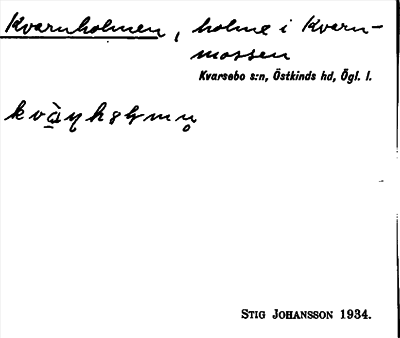 Kvarnholmen, holme i Kvarn-
mossen
Kvarsebo s:n, Östkinds hd, Ögl. l.
STIG JOHANSSON 1934.